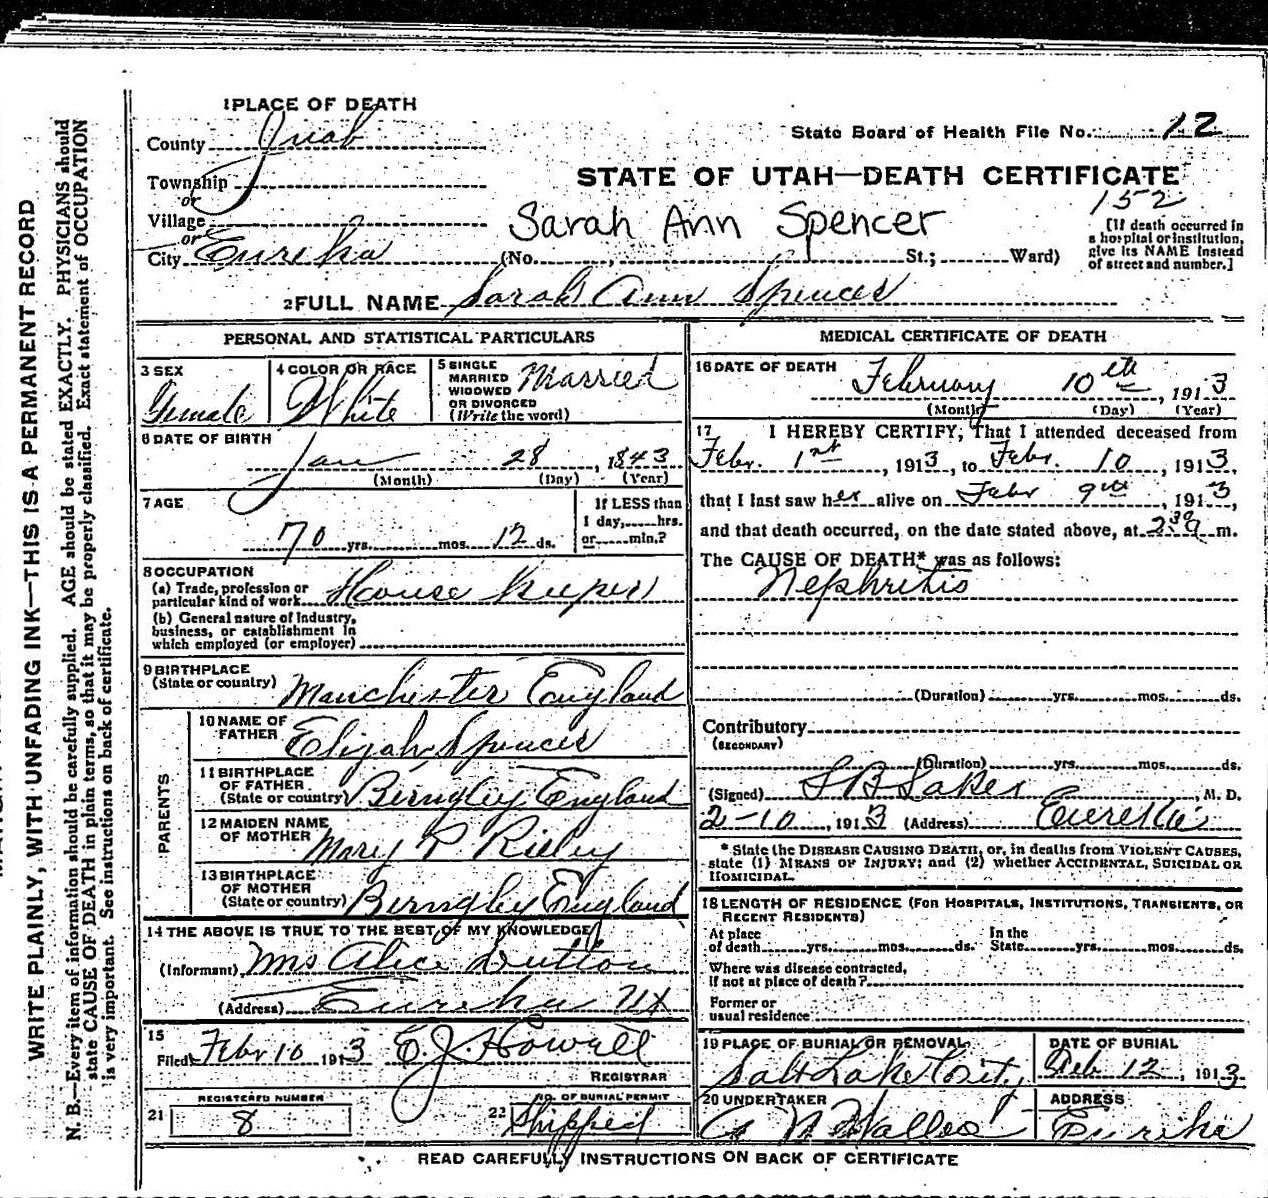 1 PLACE OF DEATH
County Juab
State Board of Health File No. 12
Township
or
STATE OF UTAH—DEATH CERTIFICATE
152
Village
or
City Eureka
Sarah Ann Spencer
(No. St.; Ward)
[If death occurred in
a hospital or institution,
give its NAME instead
of street and number.]
2 FULL NAME Sarah Ann Spencer
PERSONAL AND STATISTICAL PARTICULARS
3 SEX
Female
4 COLOR OR RACE
White
5 SINGLE
MARRIED
WIDOWED
OR DIVORCED
(Write the word)
Married
6 DATE OF BIRTH
Jan 28, 1843
(Month) (Day) (Year)
7 AGE
70 yrs. mos. 12 ds.
If LESS than
1 day, hrs.
or min.?
8 OCCUPATION
(a) Trade, profession or
particular kind of work House Keeper
(b) General nature of Industry,
business, or establishment in
which employed (or employer)
9 BIRTHPLACE
(State or country) Manchester England
PARENTS
10 NAME OF
FATHER Elijah Spencer
11 BIRTHPLACE
OF FATHER
(State or country) Bingley England
12 MAIDEN NAME
OF MOTHER Mary P
13 BIRTHPLACE
OF MOTHER
(State or country) Bingley England
14 THE ABOVE IS TRUE TO THE BEST OF MY KNOWLEDGE
(Informant) Mrs Alice Dutton
(Address) Eureka Ut
15
Filed Febr 10 1913 E. J. Howell
REGISTRAR
REGISTERED NUMBER
21 8
NO. OF BURIAL PERMIT
22 Shipped
MEDICAL CERTIFICATE OF DEATH
16 DATE OF DEATH
February 10th, 1913
(Month) (Day) (Year)
17 I HEREBY CERTIFY, That I attended deceased from
Febr. 1st, 1913, to Febr. 10, 1913,
that I last saw her alive on Febr 9th, 1913,
and that death occurred, on the date stated above, at 2:30 a m.
The CAUSE OF DEATH* was as follows:
Nephritis
(Duration) yrs. mos. ds.
Contributory
(SECONDARY)
(Duration) yrs. mos. ds.
(Signed), M. D.
2-10, 1913 (Address) Eureka
* State the DISEASE CAUSING DEATH, or, in deaths from VIOLENT CAUSES,
state (1) MEANS OF INJURY; and (2) whether ACCIDENTAL, SUICIDAL OR
HOMICIDAL.
18 LENGTH OF RESIDENCE (FOR HOSPITALS, INSTITUTIONS, TRANSIENTS, OR
RECENT RESIDENTS)
At place
of death yrs. mos. ds.
In the
State yrs. mos. ds.
Where was disease contracted,
if not at place of death?
Former or
usual residence
19 PLACE OF BURIAL OR REMOVAL
Salt Lake City
DATE OF BURIAL
Feb 12, 1913
20 UNDERTAKER
ADDRESS
Eureka
READ CAREFULLY INSTRUCTIONS ON BACK OF CERTIFICATE
WRITE PLAINLY, WITH UNFADING INK—THIS IS A PERMANENT RECORD
N. B.—Every item of information should be carefully supplied. AGE should be stated EXACTLY. PHYSICIANS should
state CAUSE OF DEATH in plain terms, so that it may be properly classified. Exact statement of OCCUPATION
is very important. See instructions on back of certificate.